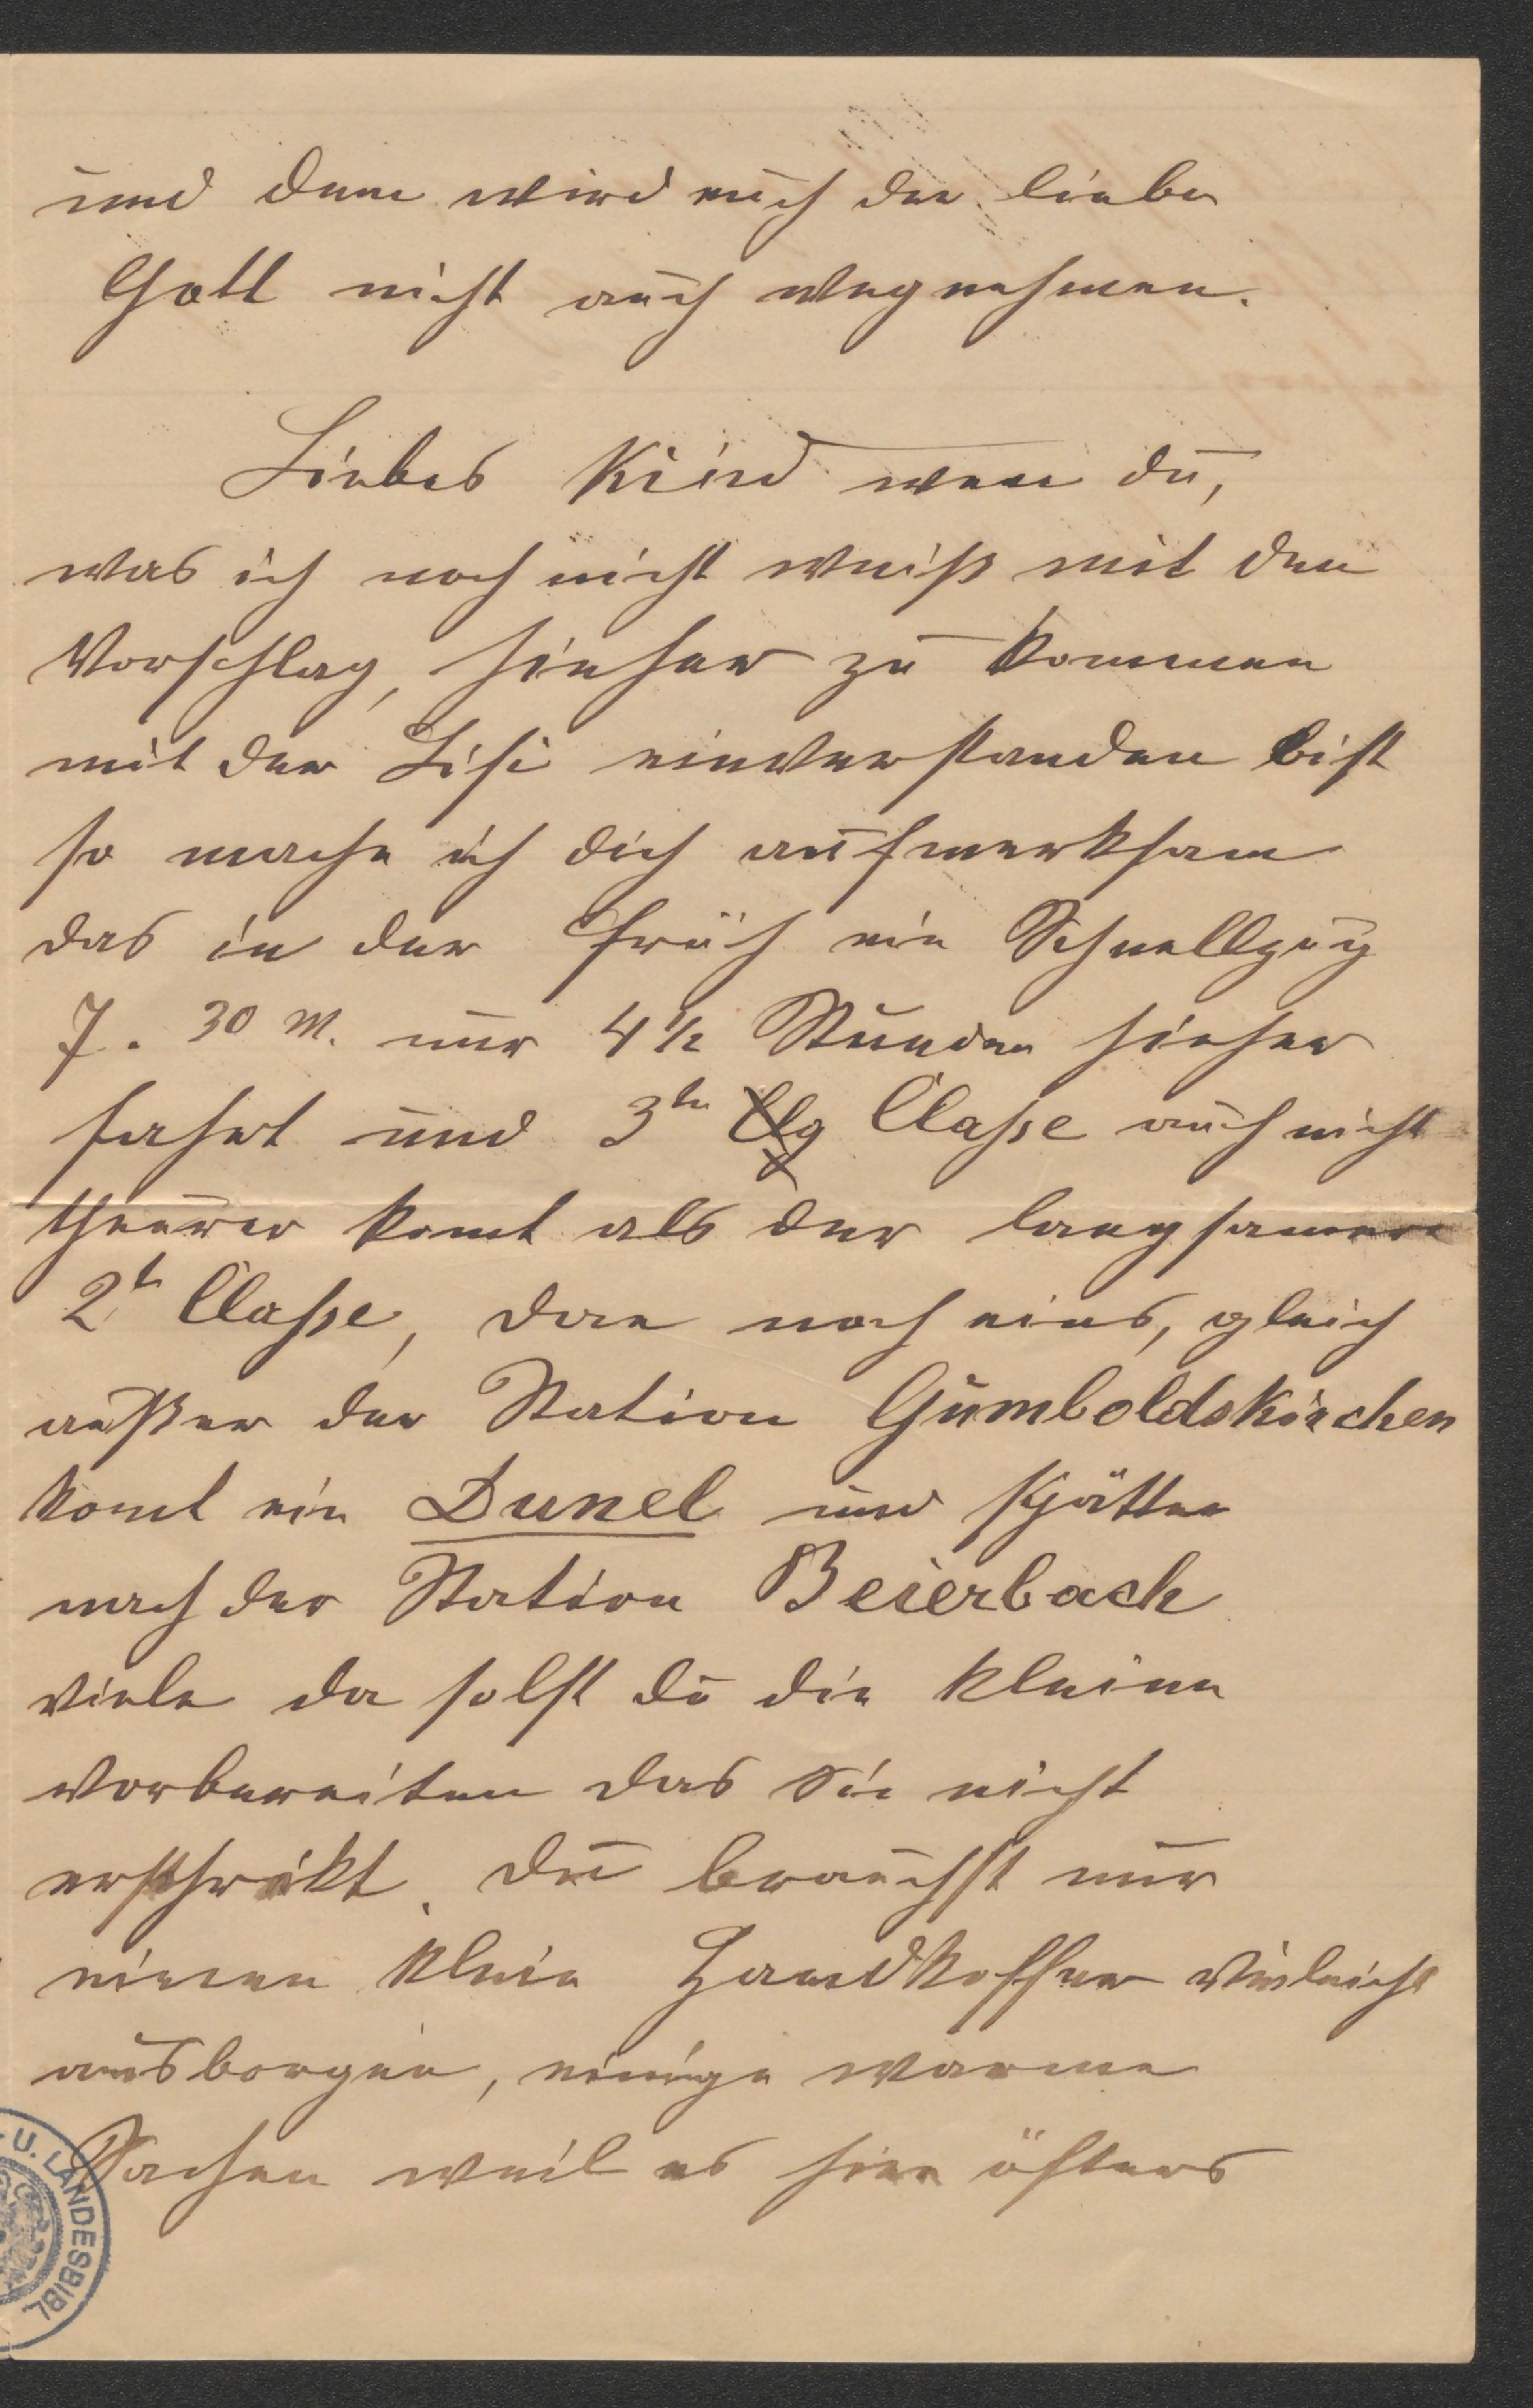 und denn wird euch der liebe
Gott nicht auch wegnehmen.
Liebes Kind wen du,
was ich noch nicht weiß mit den
Vorschlag, hieher zu kommen
mit der Lisi einverstanden bist
so mache ich dich aufmerksam
das in der Früh ein Schnellzug
7. 30 M. nur 4 ½ Stunden hieher
fahrt und 3te Clg Claße auch nicht
theurer komt als der langsamere
2t Claße, dan noch eins, gleich
außer der Station Gumboldskirchen
komt ein Dunel und spätter
nach der Station Beierbach
viele da solst du die kleine
vorbereiten das sie nicht
erschrikt. Du brauchst nur
einen klein Handkoffer vieleicht
ausborgen, einige warme
Sachen weil es hier öfters
U. LANDESBIBL